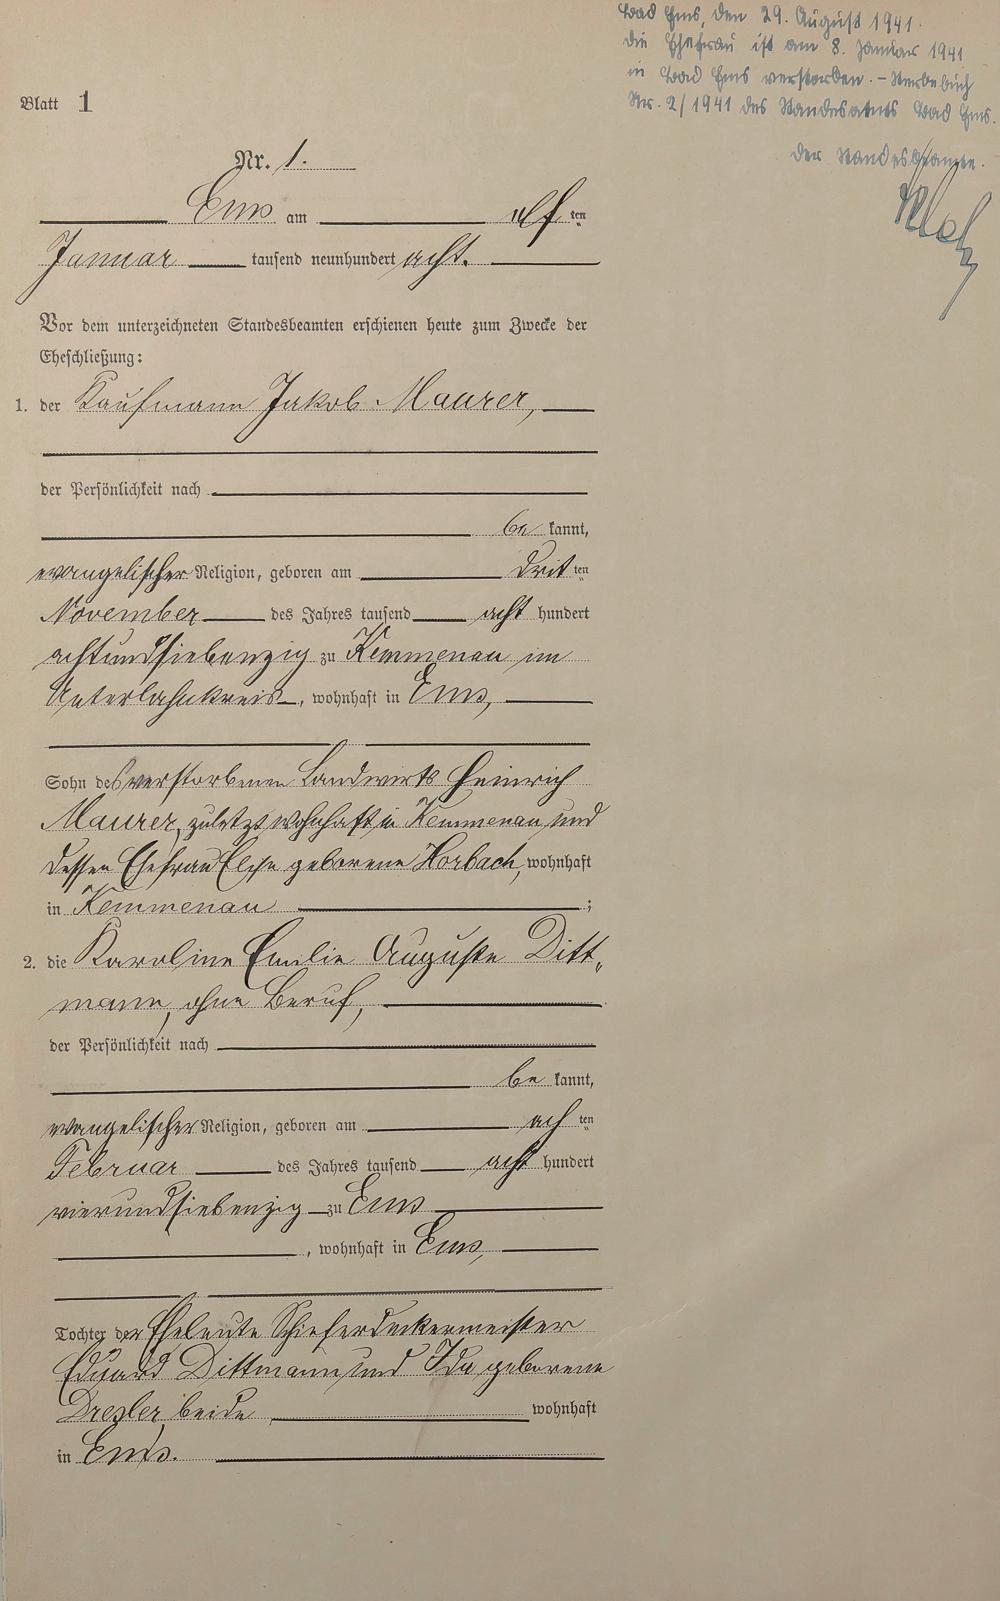 Bad Ems, den 29. August 1941.
Die Ehefrau ist am 8. Januar 1941
in Bad Ems verstorben. – Sterbebuch
Nr. 2/1941 des Standesamts Bad Ems.
Der Standesbeamte.
Blatt 1
Nr. 1.
Ems am elf ten
Januar tausend neunhundert acht.
Vor dem unterzeichneten Standesbeamten erschienen heute zum Zwecke der
Eheschließung:
1. der Kaufmann Jakob Maurer,
der Persönlichkeit nach
be kannt,
evangelischer Religion, geboren am drit ten
November des Jahres tausend acht hundert
achtundsiebenzig zu Kemmenau im
Unterlahnkreis, wohnhaft in Ems,
Sohn des verstorbenen Landwirts Heinrich
Maurer, zuletzt wohnhaft in Kemmenau, und
dessen Ehefrau Elise geborene Horbach, wohnhaft
in Kemmenau ;
2. die Karoline Emilie Auguste Ditt„
mann, ohne Beruf,
der Persönlichkeit nach
be kannt,
evangelischer Religion, geboren am ach ten
Februar des Jahres tausend acht hundert
vierundsiebenzig zu Ems
, wohnhaft in Ems,
Tochter der Eheleute Schieferdeckermeister
Eduard Dittmann und Ida geborene
Drexler, beide wohnhaft
in Ems.